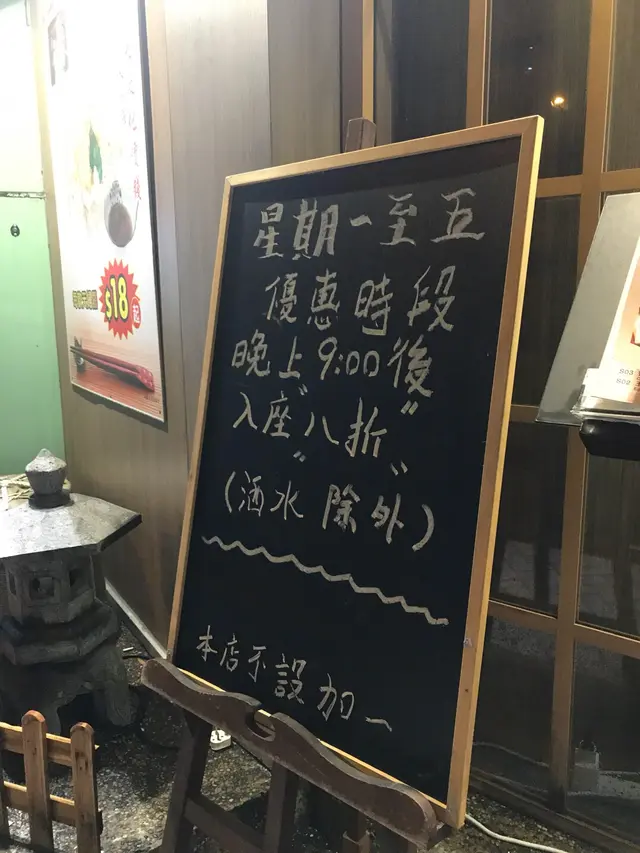 星期一至五
優惠時段
晚上9:00後
入座"八折"
(酒水 除外)
本店不設加一
$18
起
S03
S02